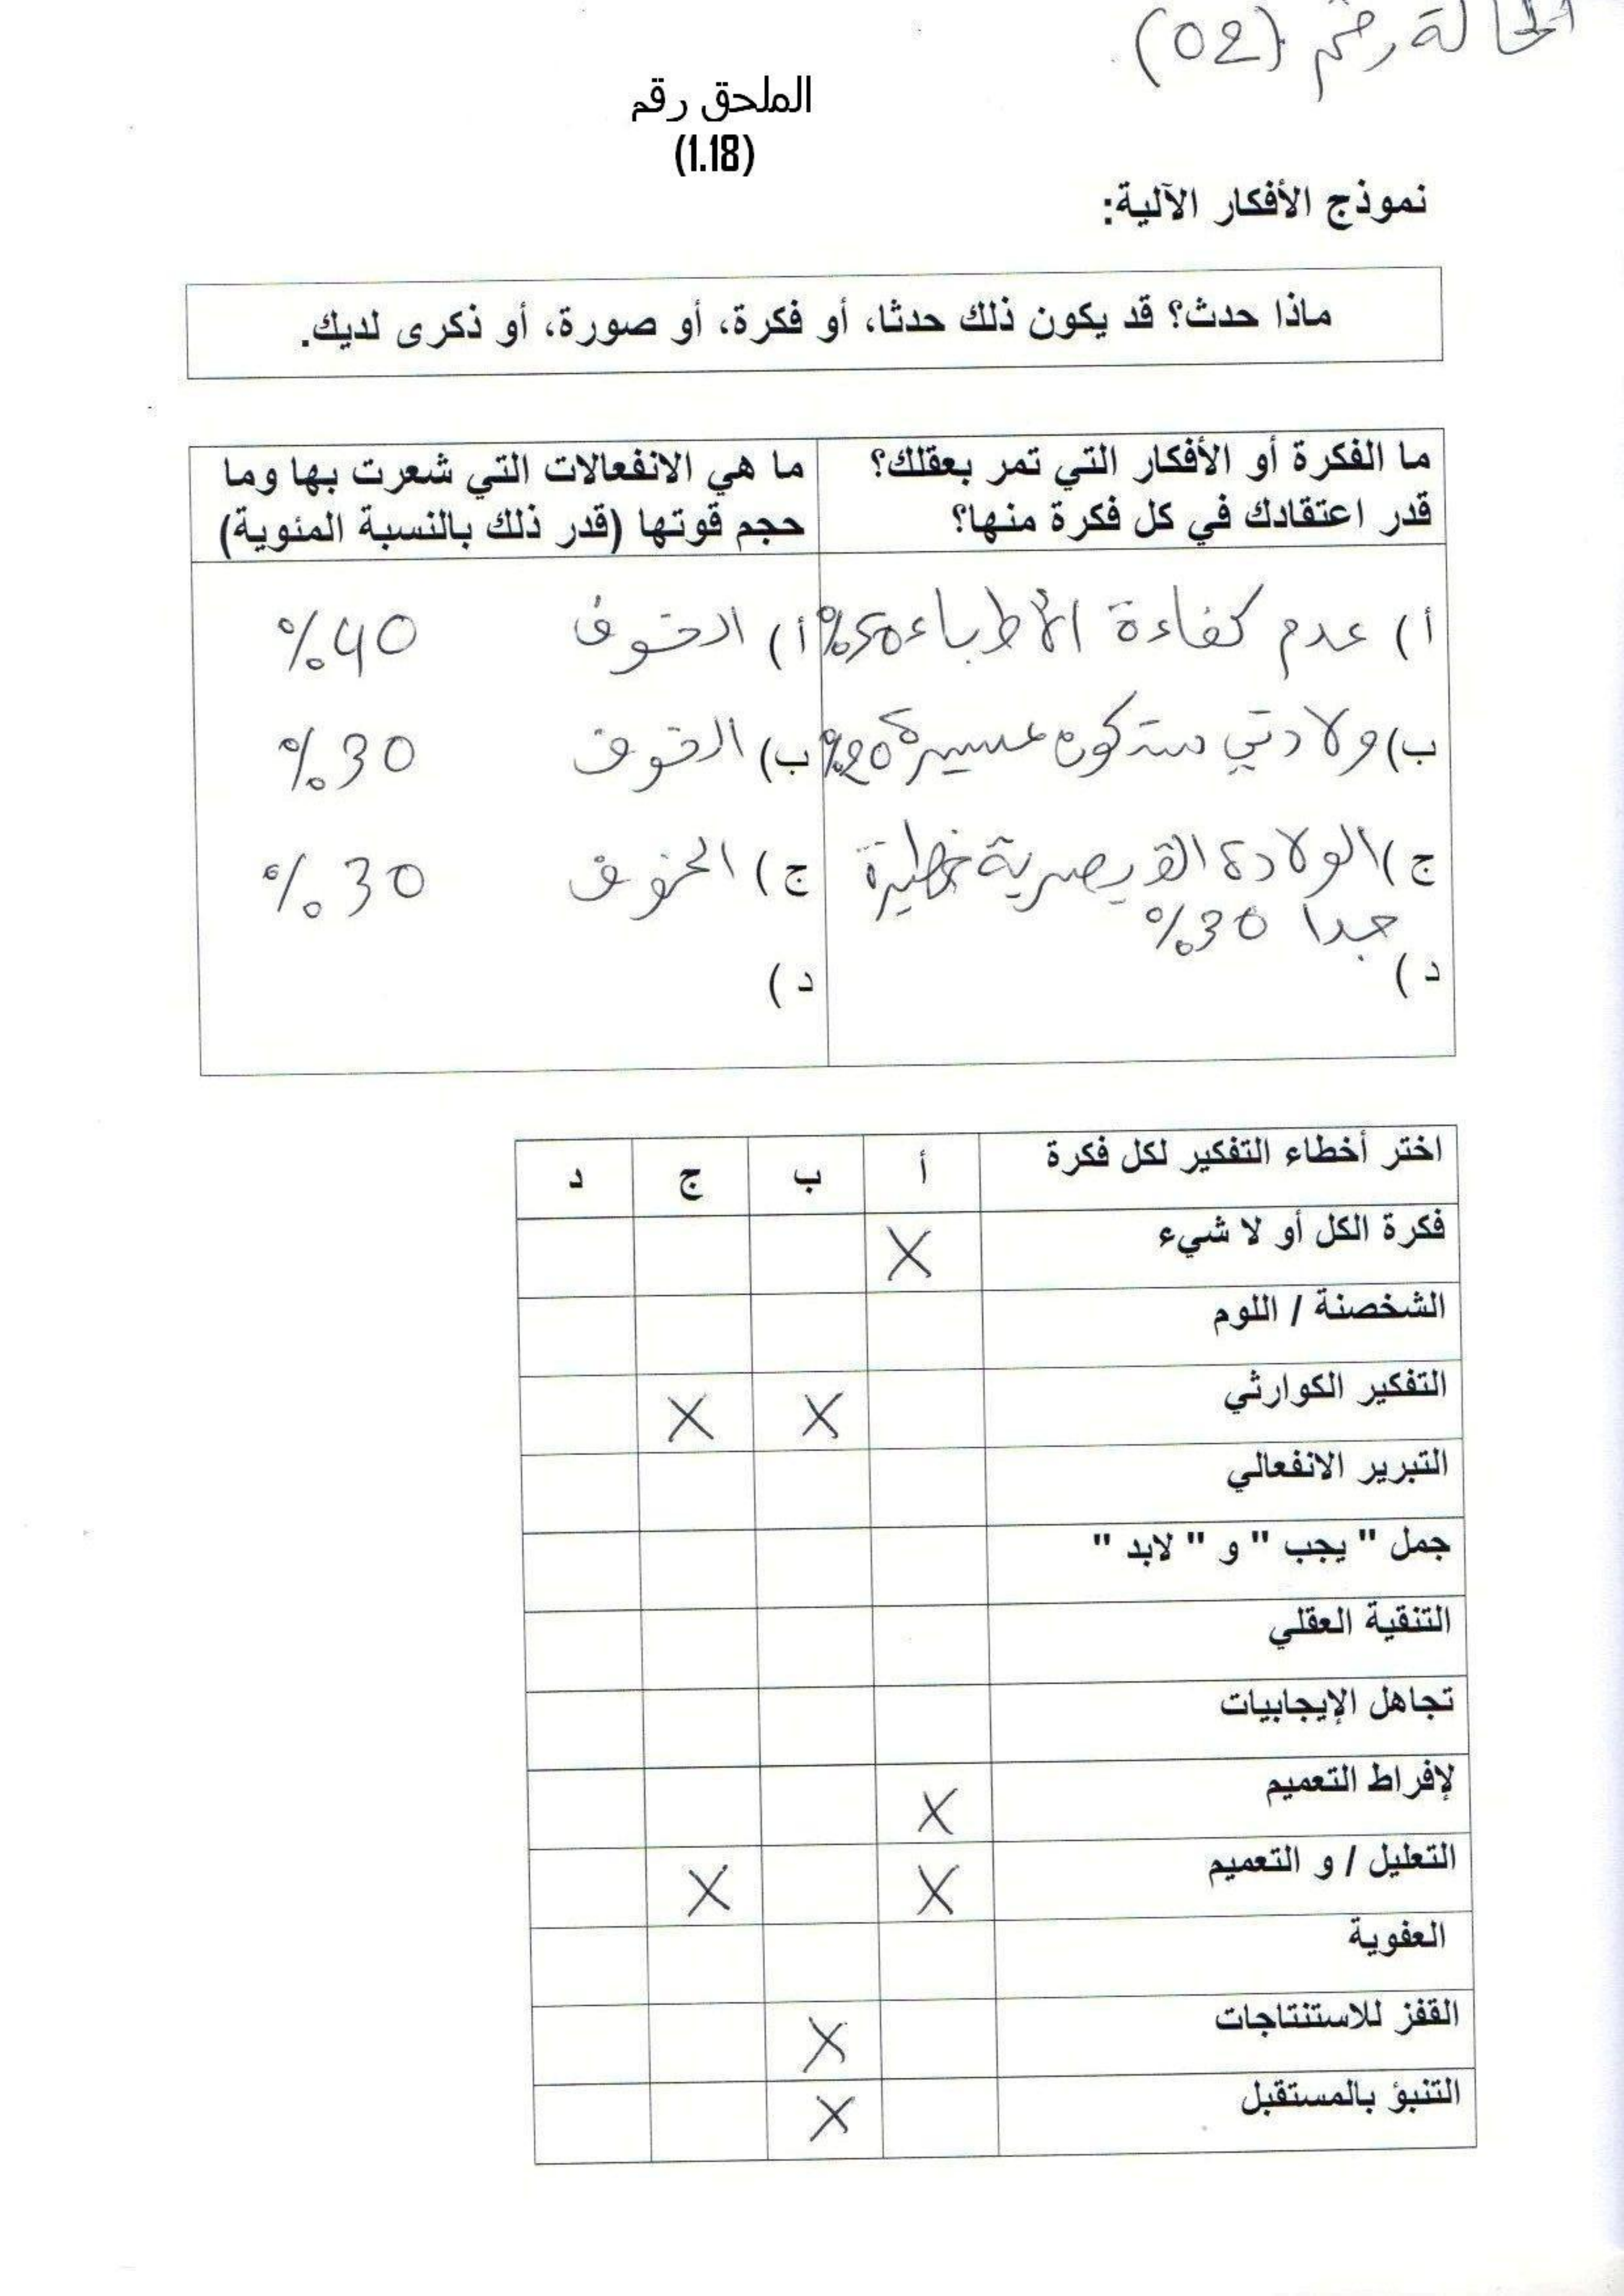 الحالة رقم (02)
الملحق رقم
(1.18)
نموذج الأفكار الآلية:
ماذا حدث؟ قد يكون ذلك حدثا، أو فكرة، أو صورة، أو ذكرى لديك.
ما الفكرة أو الأفكار التي تمر بعقلك؟ ما هي الانفعالات التي شعرت بها وما
قدر اعتقادك في كل فكرة منها؟ حجم قوتها (قدر ذلك بالنسبة المئوية)
أ) عدم كفاءة الأطباء 50% أ) الخوف 40%
ب) ولادتي ستكون عسيرة 20% ب) الخوف 30%
ج) الولادة القيصرية خطيرة ج) الخوف 30%
جدا 30%
د) د)
اختر أخطاء التفكير لكل فكرة أ ب ج د
فكرة الكل أو لا شيء X
الشخصنة / اللوم
التفكير الكوارثي X X
التبرير الانفعالي
جمل " يجب " و " لابد "
التنقية العقلي
تجاهل الإيجابيات
لإفراط التعميم X
التعليل / و التعميم X X
العفوية
القفز للاستنتاجات X
التنبؤ بالمستقبل X